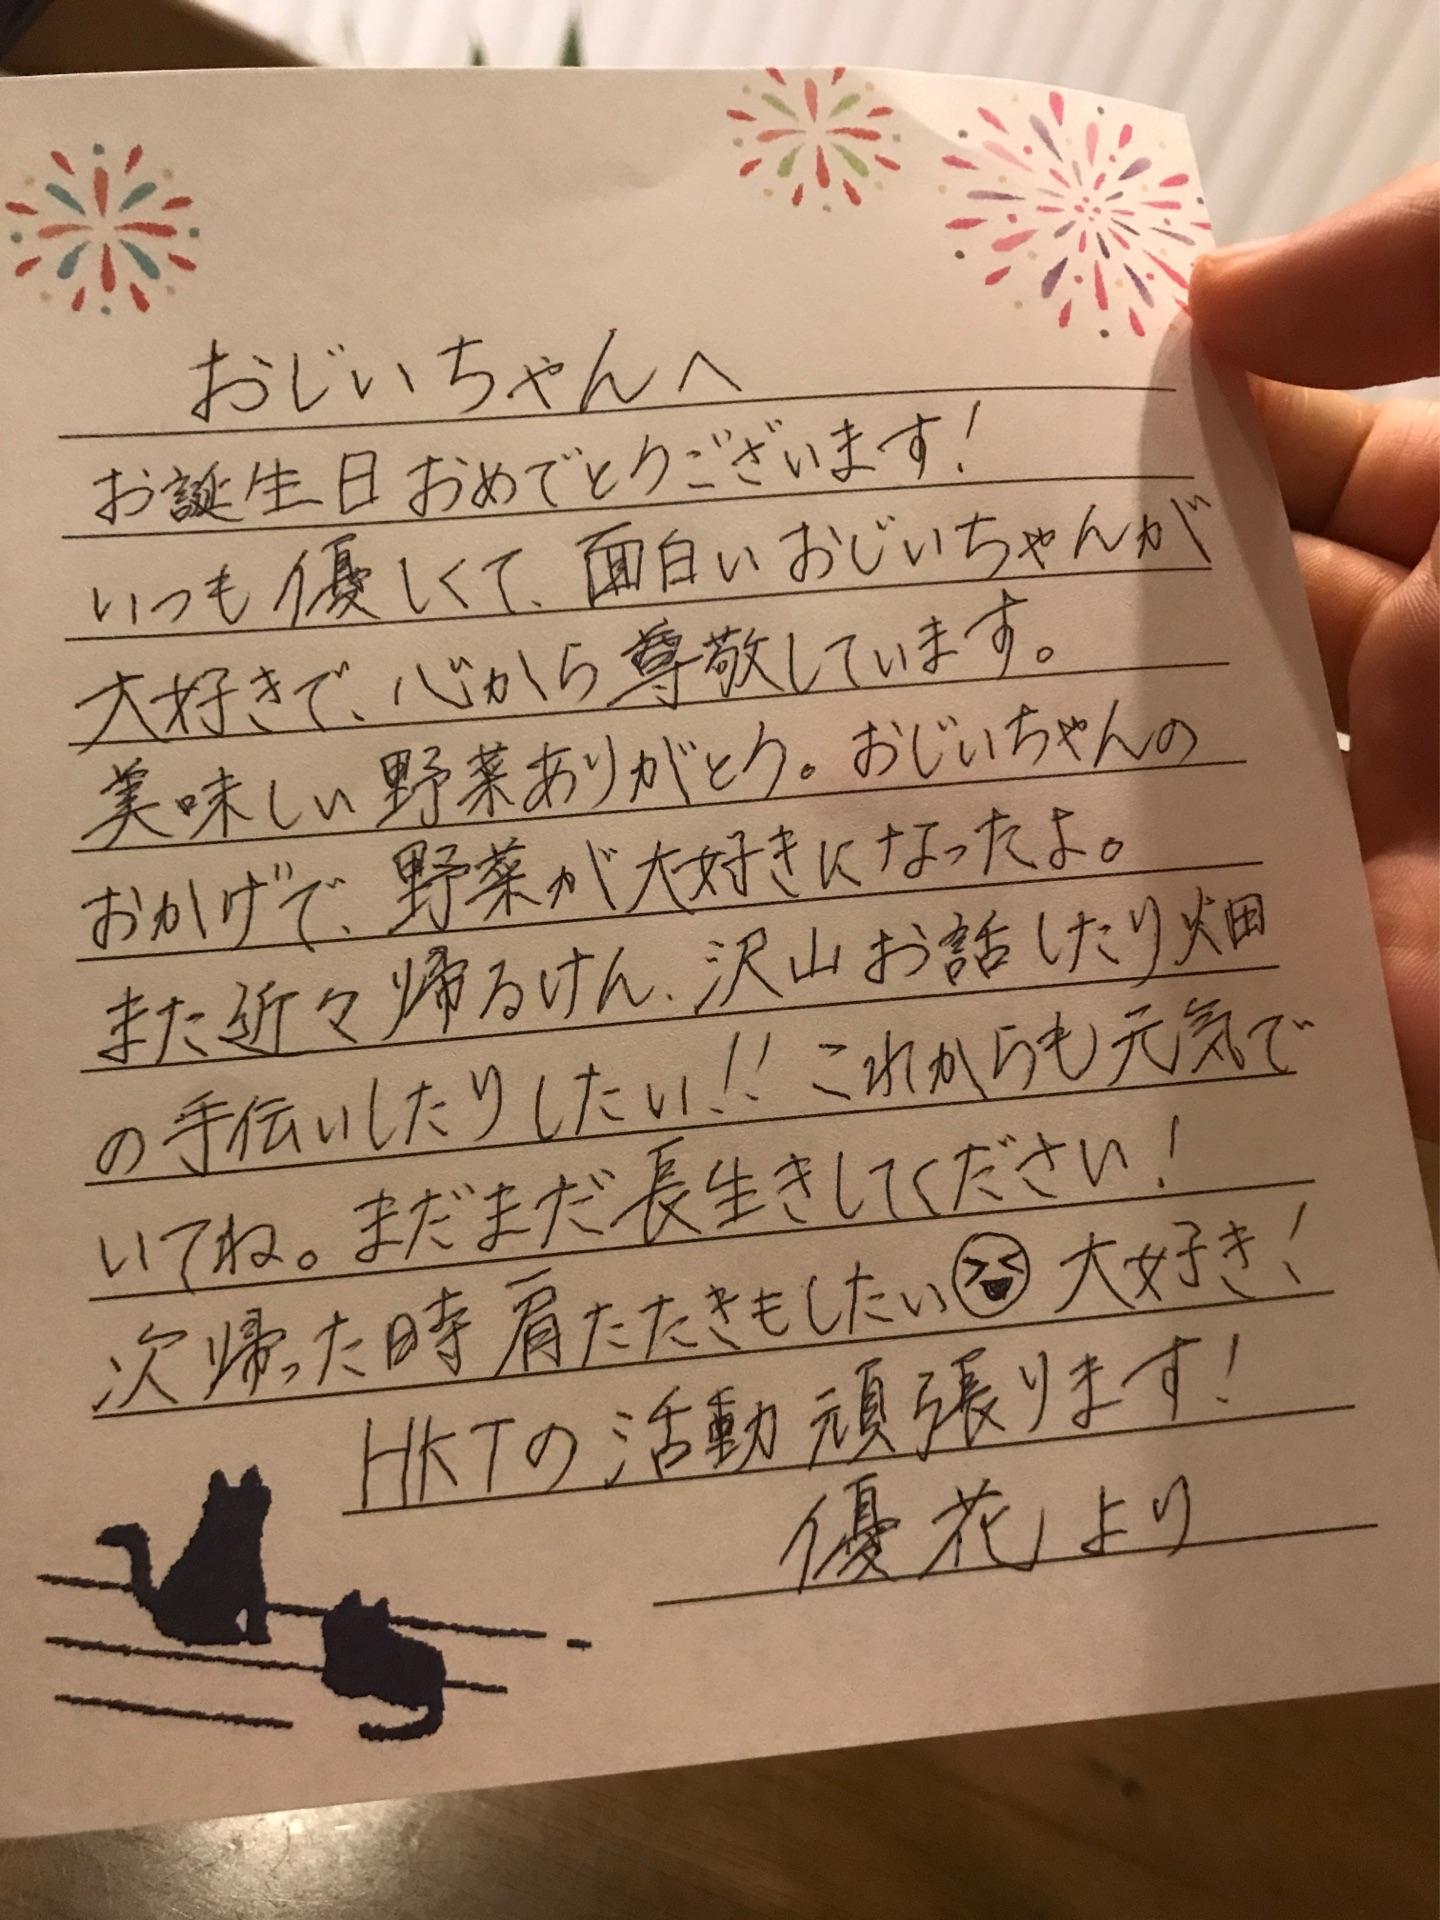 おじいちゃんへ
お誕生日おめでとうございます!
いつも優しくて、面白いおじいちゃんが
大好きで、心から尊敬しています。
美味しい野菜ありがとう。おじいちゃんの
おかげで、野菜が大好きになったよ。
また近々帰るけん、沢山お話したり畑
の手伝いしたりしたい!! これからも元気で
いてね。まだまだ長生きしてください!
次帰った時肩たたきもしたい 大好き!
HKTの活動頑張ります!
優花より